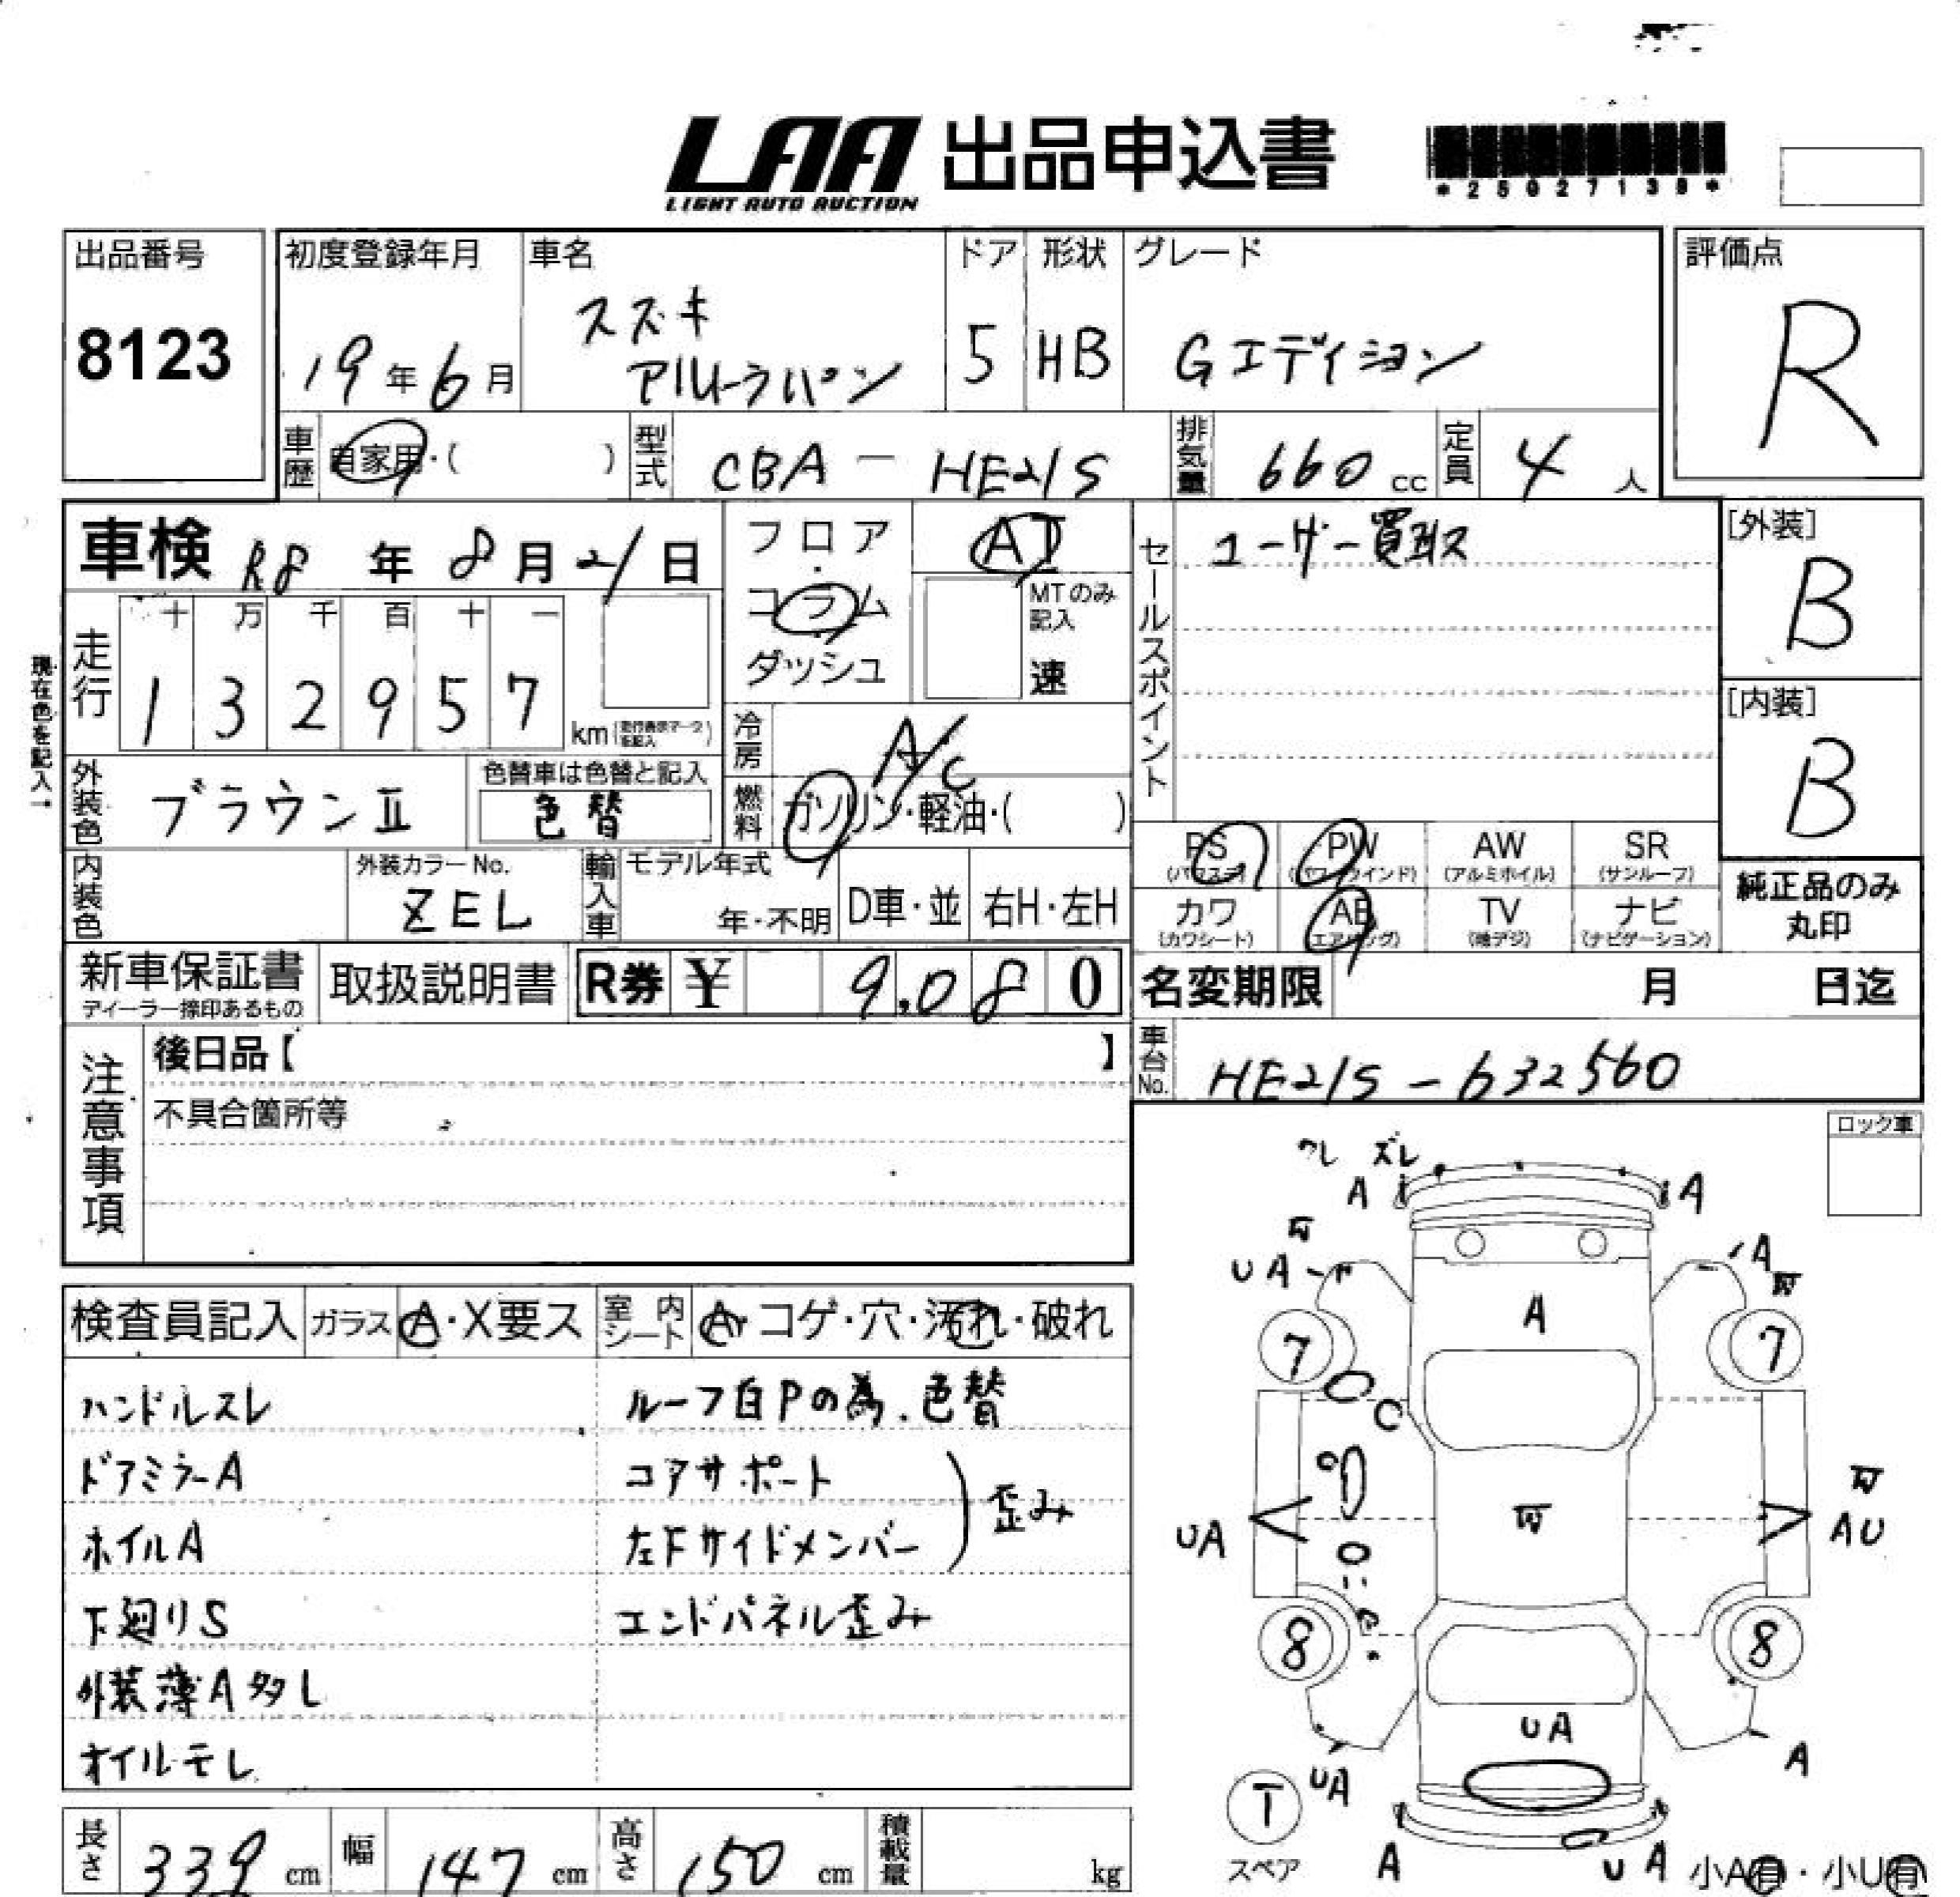 LAA 出品申込書
LIGHT AUTO AUCTION
*25027139*
出品番号
8123
初度登録年月
19年6月
車名
スズキ
アルトラパン
ドア
5
形状
HB
グレード
Gエディション
評価点
R
車歴 自家用・( )
型式 CBA-HE21S
排気量 660 cc
定員 4 人
車検 R8年8月21日
フロア・コラム・ダッシュ
AT
MTのみ記入
速
セールスポイント
ユーザー買取ス
[外装]
B
[内装]
B
現在色を記入→
走行
十 万 千 百 十 一
1 3 2 9 5 7
km
冷房 A/C
燃料 ガソリン・軽油・( )
外装色 ブラウンII
色替車は色替と記入
色替
内装色
外装カラーNo.
ZEL
輸入車
モデル年式
年・不明
D車・並
右H・左H
PS (パワステ)
PW (パワーウインド)
AW (アルミホイル)
SR (サンルーフ)
カワ (カワシート)
AB (エアバッグ)
TV (地デジ)
ナビ (ナビゲーション)
純正品のみ
丸印
新車保証書
ディーラー捺印あるもの
取扱説明書
R券 ¥ 9,080
名変期限 月 日迄
注意事項
後日品【 】
不具合箇所等
車台No. HE21S-632560
ロック車
検査員記入
ガラス A・X要ス
室内シート A・コゲ・穴・汚れ・破れ
ハンドルスレ
ルーフ白Pの為、色替
ドアミラーA
コアサポート
ホイルA
左Fサイドメンバー
歪み
下廻りS
エンドパネル歪み
外装薄A多し
オイルモレ
ワレ ズレ
A
A
UA
A
A
7
7
C
UA
AU
8
8
UA
UA
A
T
スペア
A
UA
小A有・小U有
長さ 339 cm
幅 147 cm
高さ 150 cm
積載量 kg